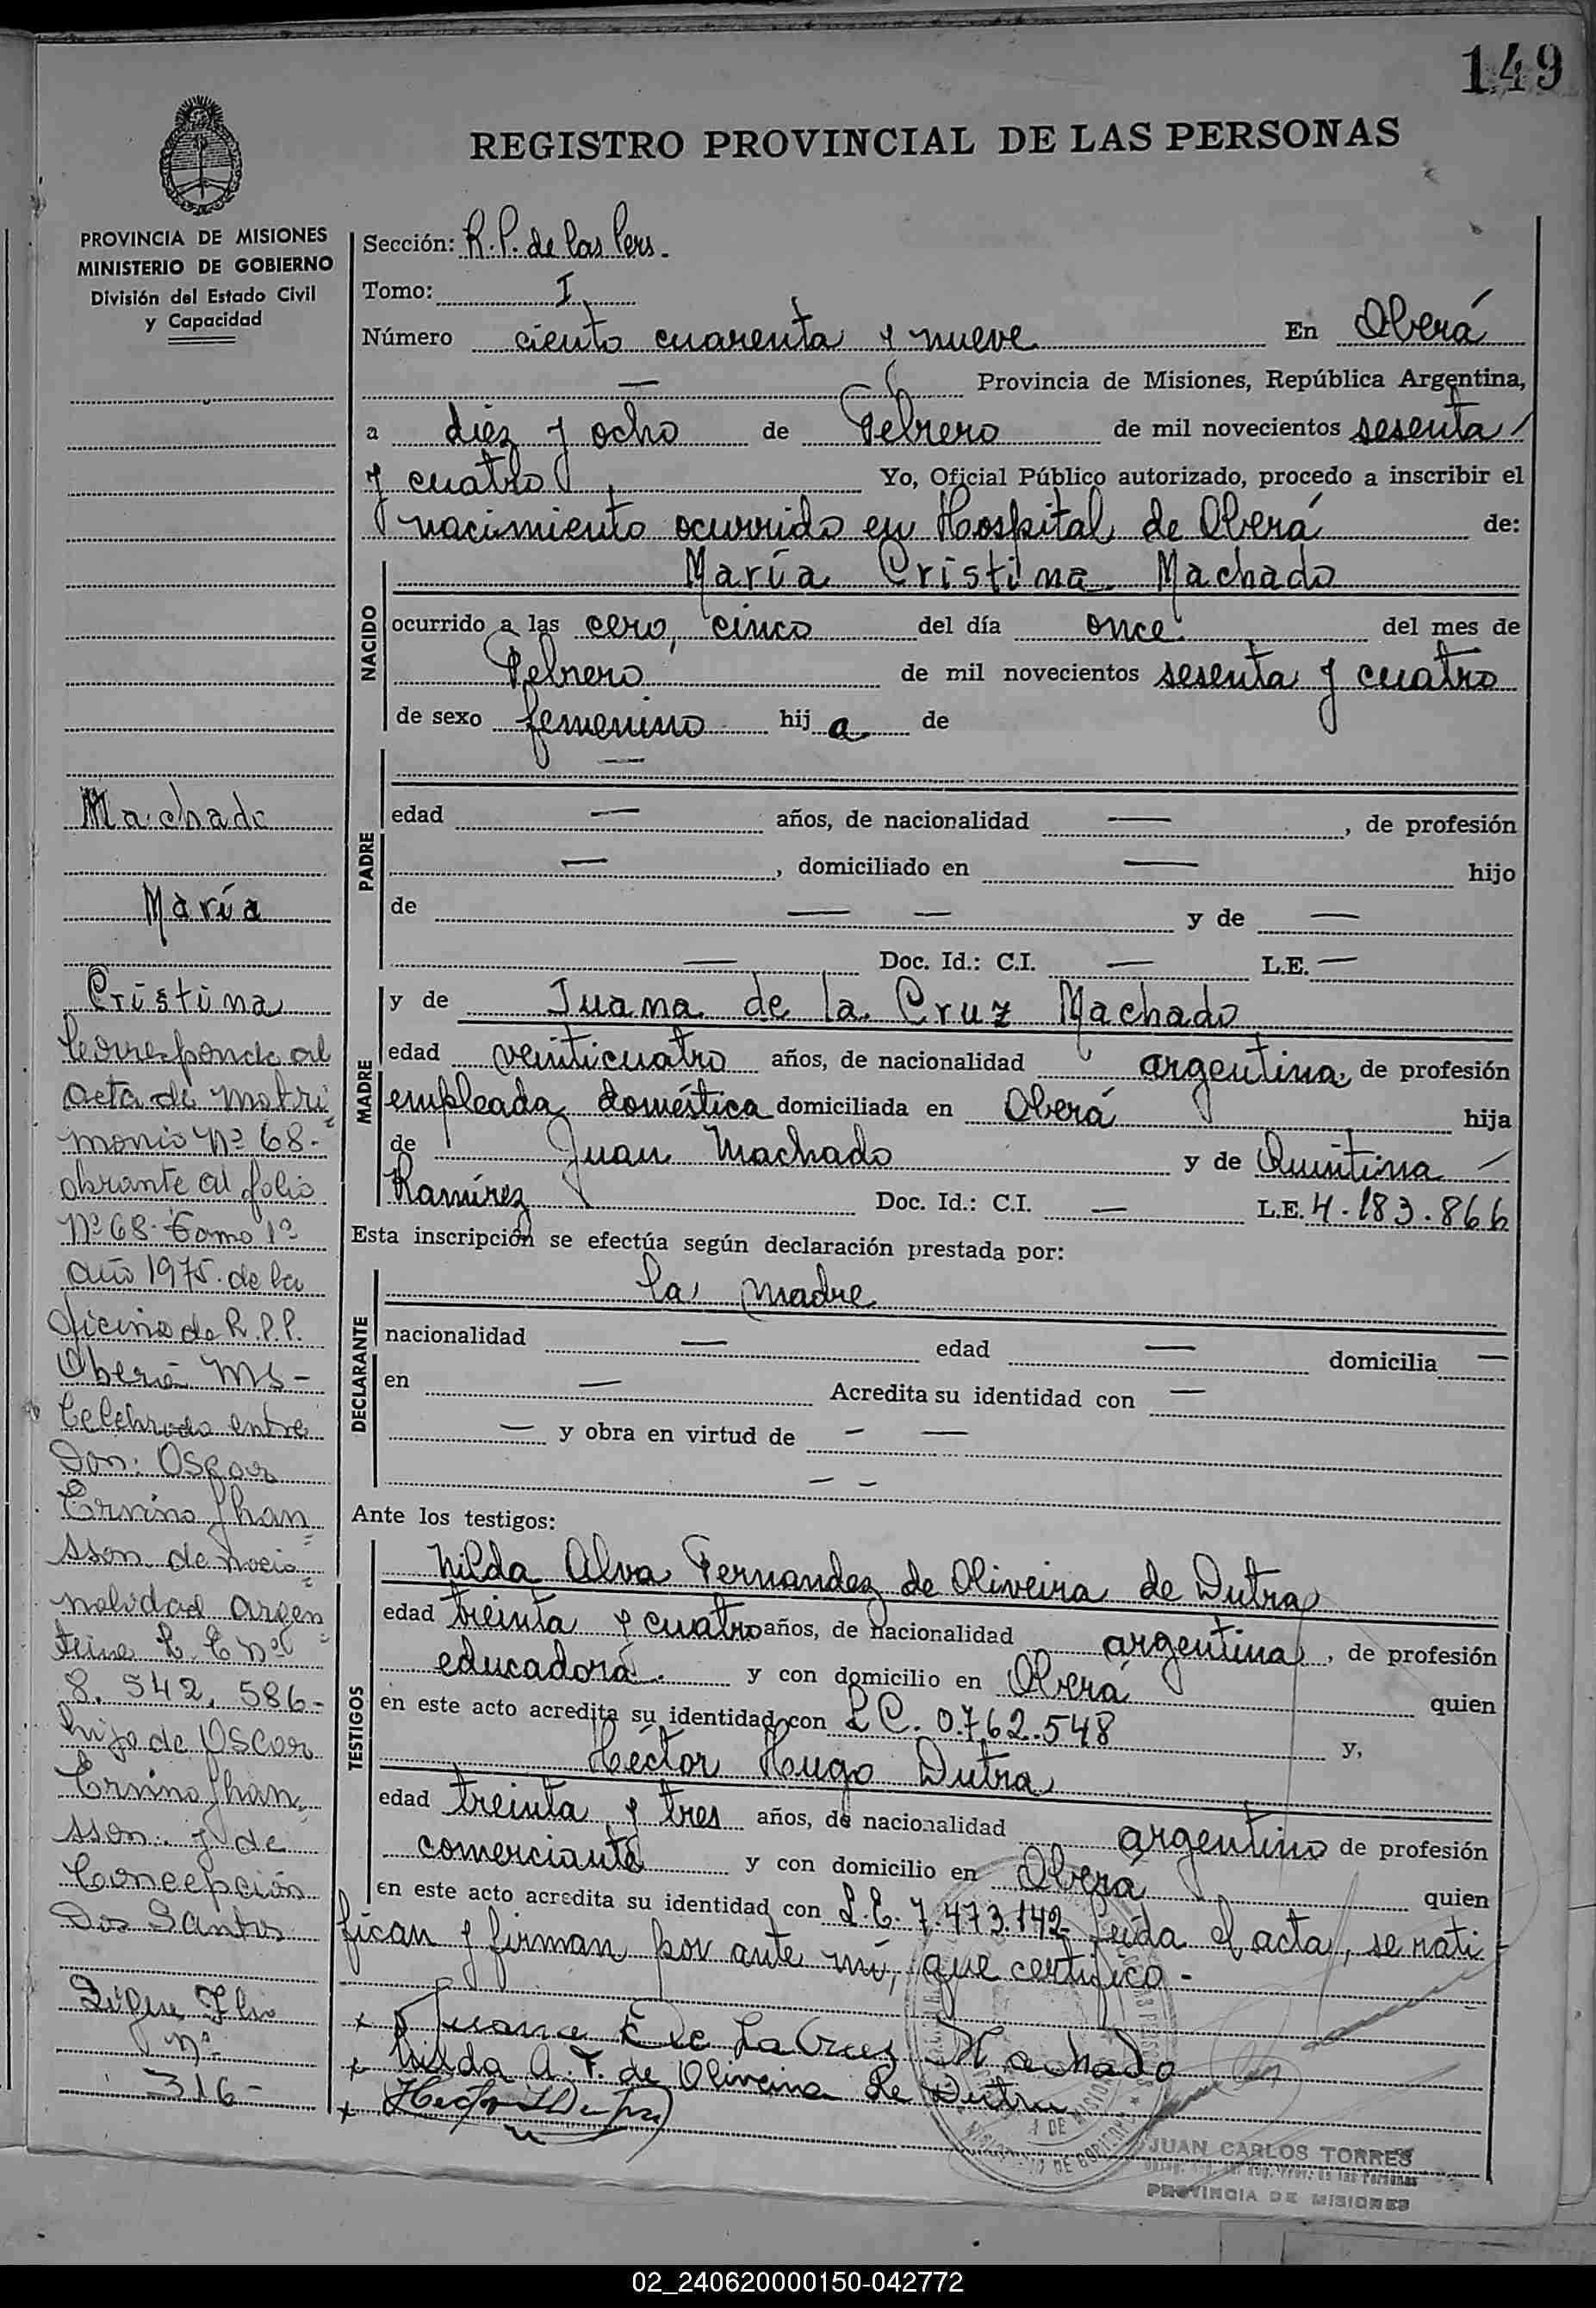 149
REGISTRO PROVINCIAL DE LAS PERSONAS
PROVINCIA DE MISIONES
MINISTERIO DE GOBIERNO
División del Estado Civil
y Capacidad
Machado
María
Cristina
Corresponde al
acta de matri
monio Nº 68-
obrante al folio
Nº 68- Tomo 1º
año 1975. de la
oficina de R.P.P.
Oberá Ms-
Celebrado entre
Don: Oscar
Ervino Jhan
sson de nacio
nalidad argen
tina L. E nº
8. 542. 586-
hijo de Oscar
Ervino Jhan
sson. y de
Concepción
Dos Santos
Sigue Flio
nº
316-
Sección: R.P. de las Pers.
Tomo: I
Número ciento cuarenta y nueve En Oberá
Provincia de Misiones, República Argentina,
a diez y ocho de Febrero de mil novecientos sesenta
y cuatro Yo, Oficial Público autorizado, procedo a inscribir el
nacimiento ocurrido en Hospital de Oberá de:
NACIDO
María Cristina Machado
ocurrido a las cero, cinco del día once del mes de
Febrero de mil novecientos sesenta y cuatro
de sexo femenino hij a de
PADRE
edad — años, de nacionalidad — , de profesión
— , domiciliado en — hijo
de — — y de —
— Doc. Id.: C.I. — L.E. —
MADRE
y de Juana de la Cruz Machado
edad veinticuatro años, de nacionalidad argentina, de profesión
empleada doméstica domiciliada en Oberá hija
de Juan Machado y de Quintina
Ramírez Doc. Id.: C.I. — L.E. 4.183.866
Esta inscripción se efectúa según declaración prestada por:
DECLARANTE
la madre
nacionalidad — edad — domicilia —
en — Acredita su identidad con —
— y obra en virtud de — —
— —
Ante los testigos:
TESTIGOS
Nilda Alva Fernandez de Oliveira de Dutra
edad treinta y cuatro años, de nacionalidad argentina, de profesión
educadora. y con domicilio en Oberá quien
en este acto acredita su identidad con L C. 0.762.548 y,
Héctor Hugo Dutra
edad treinta y tres años, de nacionalidad argentino de profesión
comerciante y con domicilio en Oberá quien
en este acto acredita su identidad con L.E. 7.473.142- Leída el acta, se rati
fican y firman por ante mí, que certifico-
x Juana De La Cruz Machado
x Nilda A. F. de Oliveira de Dutra
x
JUAN CARLOS TORRES
PROVINCIA DE MISIONES
02_240620000150-042772